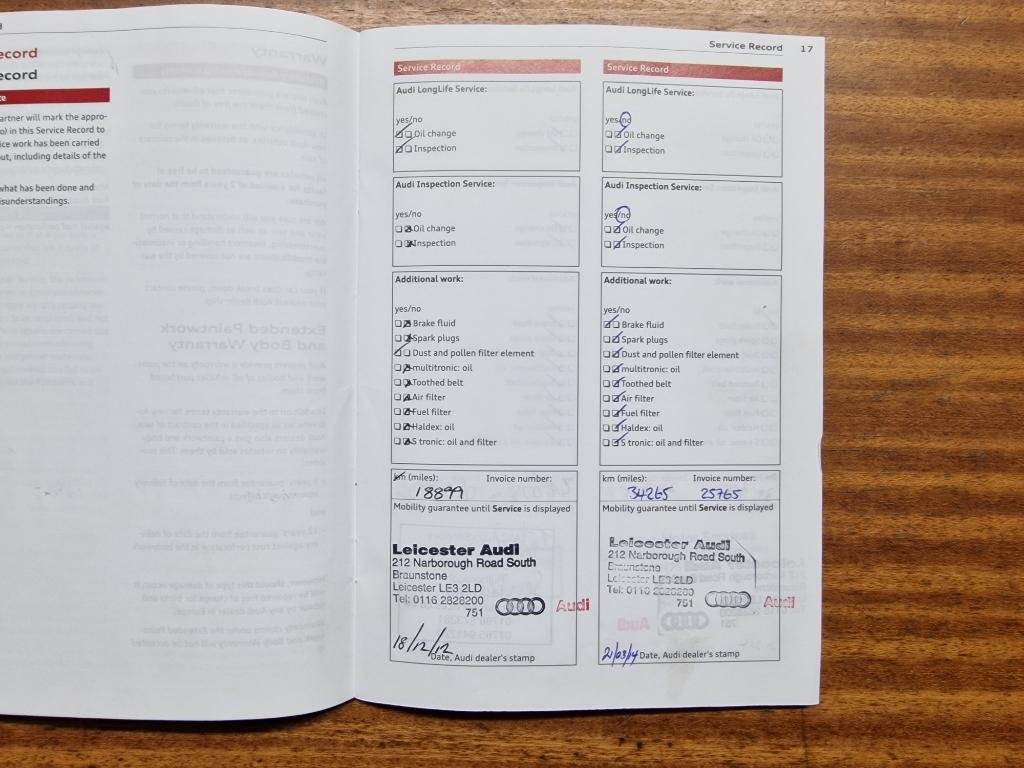 ecord
ecord
ce
artner will mark the appro-
o) in this Service Record to
ice work has been carried
out, including details of the
what has been done and
isunderstandings.
Service Record 17
Service Record
Audi LongLife Service:
yes/no
Oil change
Inspection
Audi Inspection Service:
yes/no
Oil change
Inspection
Additional work:
yes/no
Brake fluid
Spark plugs
Dust and pollen filter element
multitronic: oil
Toothed belt
Air filter
Fuel filter
Haldex: oil
S tronic: oil and filter
km (miles): Invoice number:
18899
Mobility guarantee until Service is displayed
Leicester Audi
212 Narborough Road South
Braunstone
Leicester LE3 2LD
Tel: 0116 2828200
751 Audi
18/12/12
Date, Audi dealer's stamp
Service Record
Audi LongLife Service:
yes/no
Oil change
Inspection
Audi Inspection Service:
yes/no
Oil change
Inspection
Additional work:
yes/no
Brake fluid
Spark plugs
Dust and pollen filter element
multitronic: oil
Toothed belt
Air filter
Fuel filter
Haldex: oil
S tronic: oil and filter
km (miles): Invoice number:
34265 25765
Mobility guarantee until Service is displayed
Leicester Audi
212 Narborough Road South
Braunstone
Leicester LE3 2LD
Tel: 0116 2828200
751 Audi
21/03/14 Date, Audi dealer's stamp